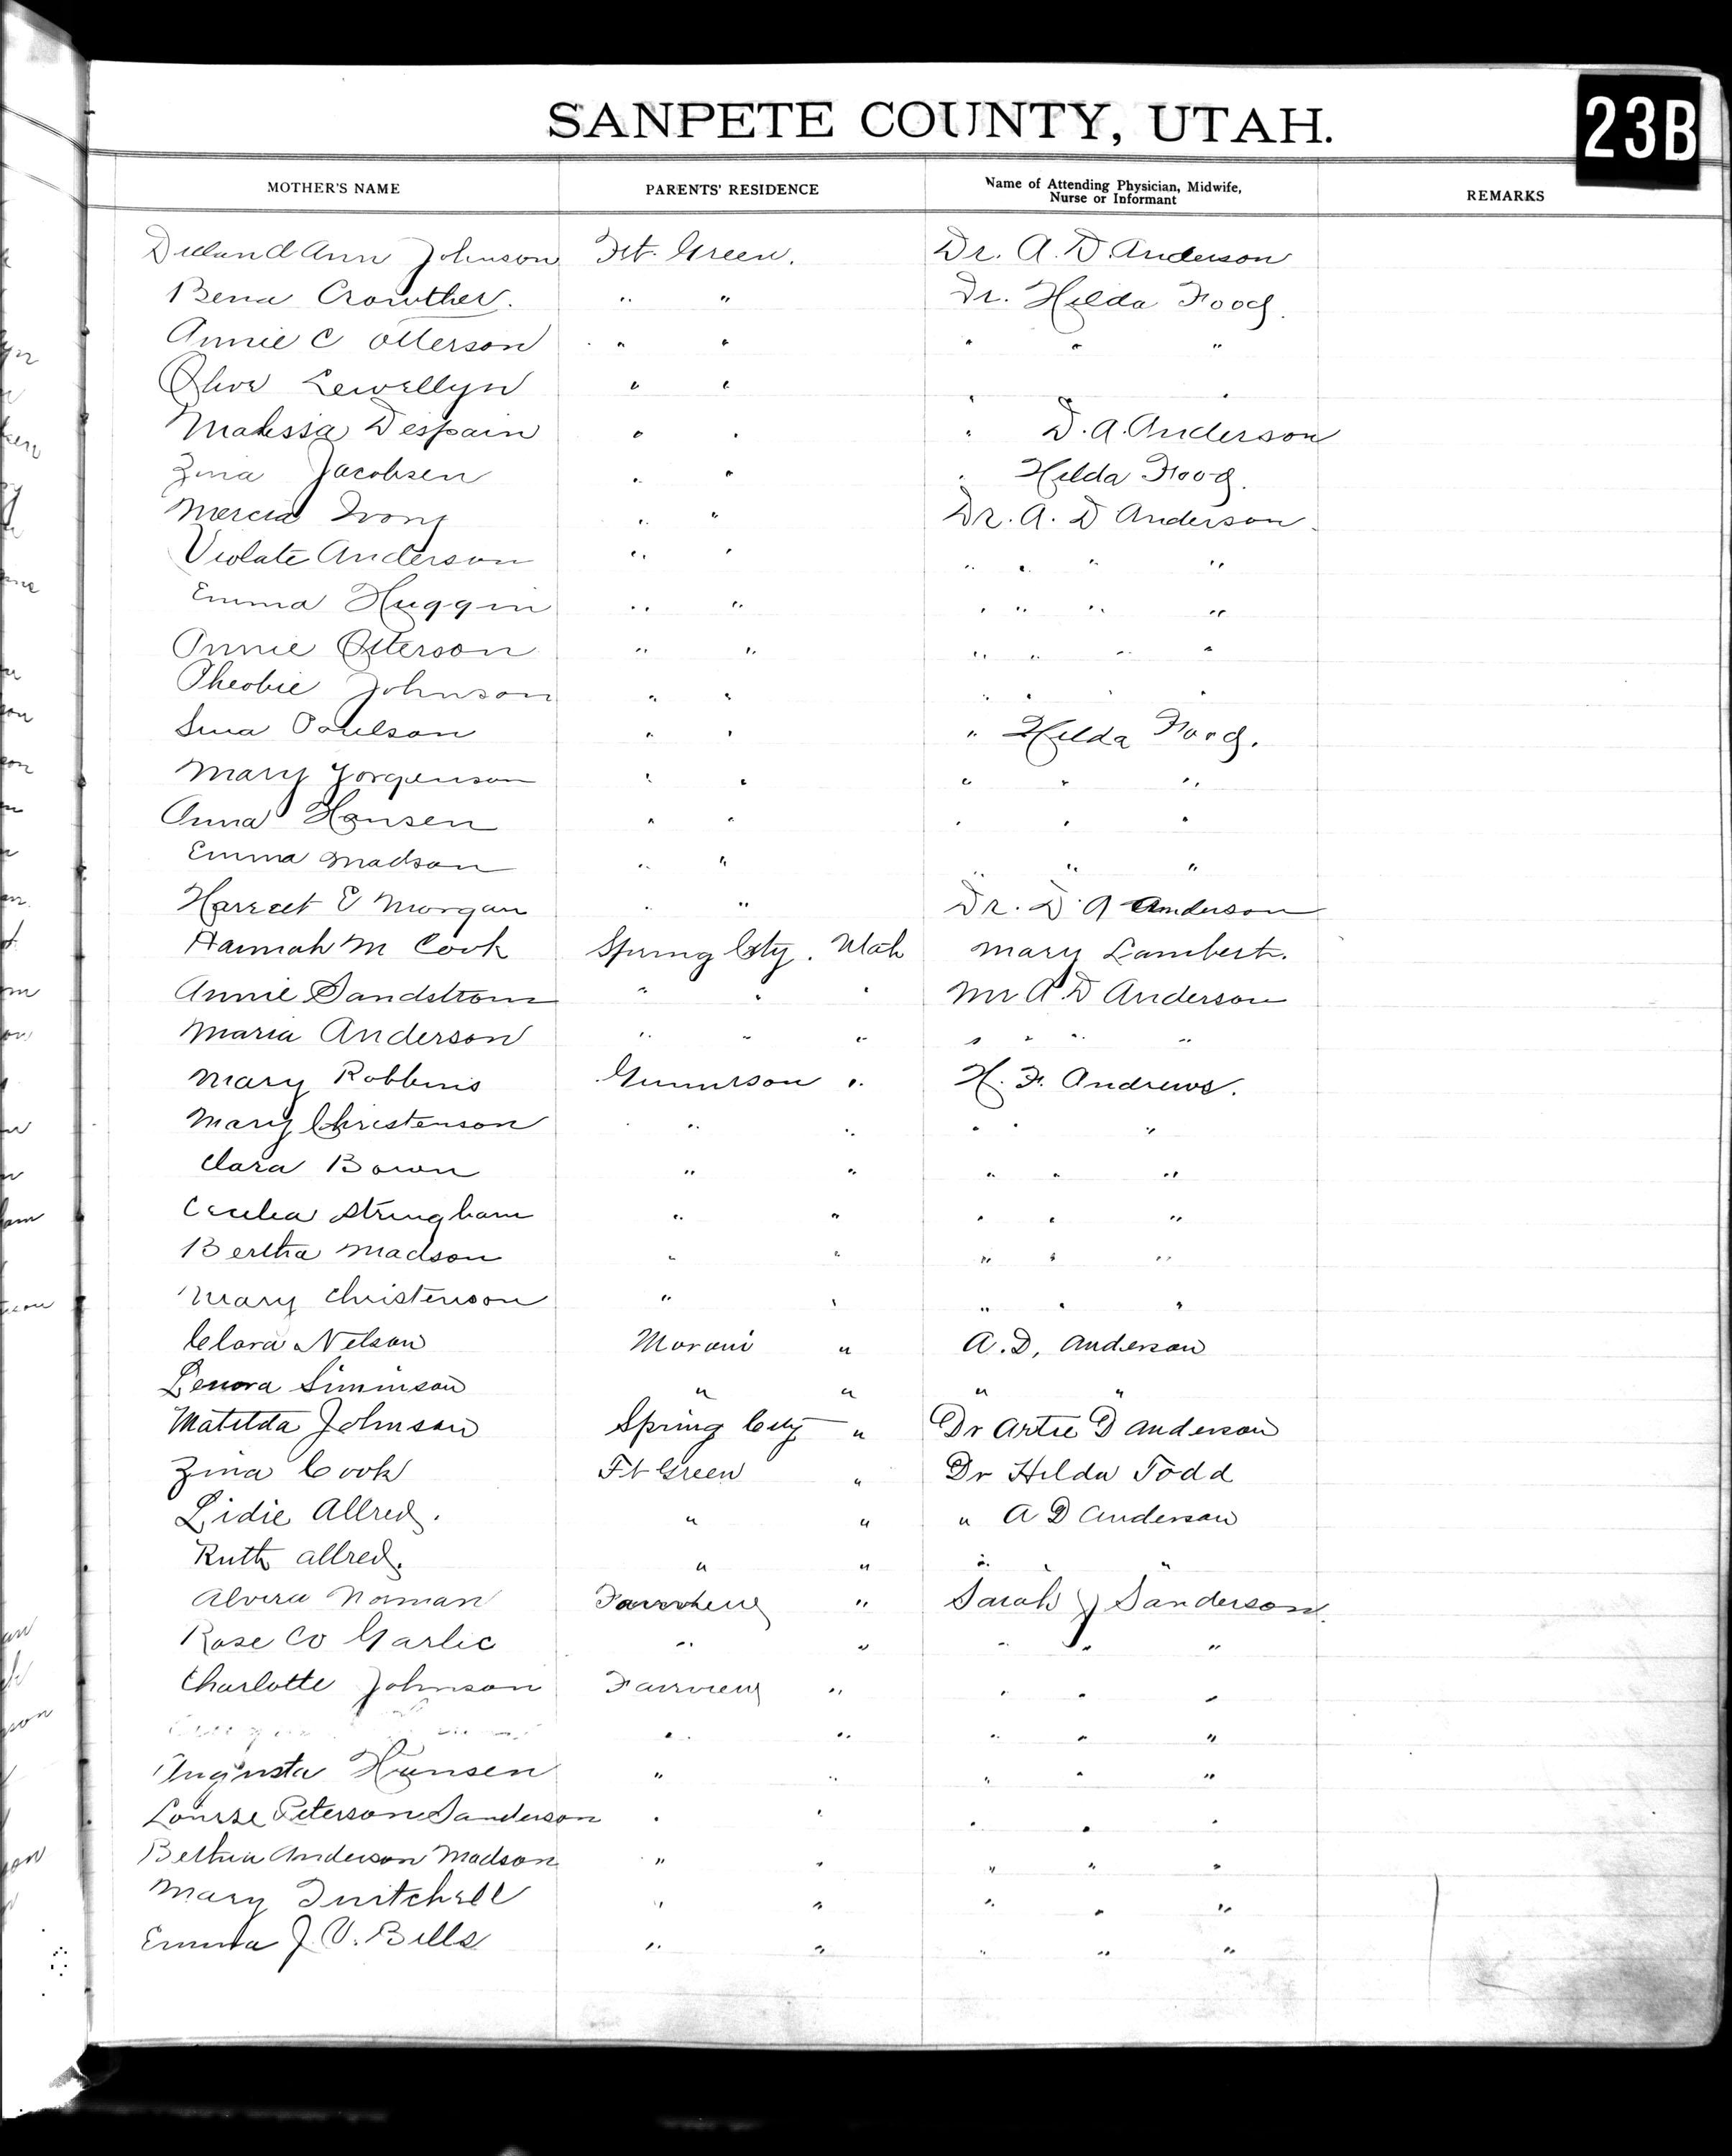 SANPETE COUNTY, UTAH.
23B
MOTHER'S NAME PARENTS' RESIDENCE Name of Attending Physician, Midwife, Nurse or Informant REMARKS
Ann Johnson Ft. Green. Dr. A. D. Anderson
Bena Crowther. " " Dr. Hilda
Annie C Otterson " " " " "
Olive Lewellyn " " " "
Malissa Despain " " " D. A. Anderson
Zina Jacobsen " " " Hilda
Mercia Ivory " " Dr. A. D Anderson
Violate Anderson " " " " " "
Emma Huggin " " " " " "
Annie Otterson " " " " " "
Pheobie Johnson " " " " " "
Sina Poulson " " " Hilda
Mary Jorgenson " " " " "
Anna Hansen " " " " "
Emma Madson " " " " "
Harriet E Morgan " " Dr. D A Anderson
Hannah M Cook Spring City. Utah Mary Lambert.
Annie Sandstrom " " " Mr A D Anderson
Maria Anderson " " " " " " "
Mary Robbins Gunnison " H. F. Andrews.
Mary Christenson " " " " "
Clara Bown " " " " "
Cecelia Stringham " " " " "
Bertha Madson " " " " "
Mary Christenson " " " " "
Clara Nelson Moroni " A. D. Anderson
Lenora Siminson " " " "
Matilda Johnson Spring City " Dr Artie D Anderson
Zina Cook Ft Green " Dr Hilda Todd
Lidie Allred. " " " A D Anderson
Ruth Allred. " " " "
Alvira Norman Fairview " Sarah J Sanderson
Rose Co Garlic " " " " "
Charlotte Johnson Fairview " " " "
" " " " "
Augusta Hansen " " " " "
Lourse Peterson Sanderson " " " " "
Anderson Madson " " " " "
Mary Twitchell " " " " "
Emma J. V. Bills " " " " "